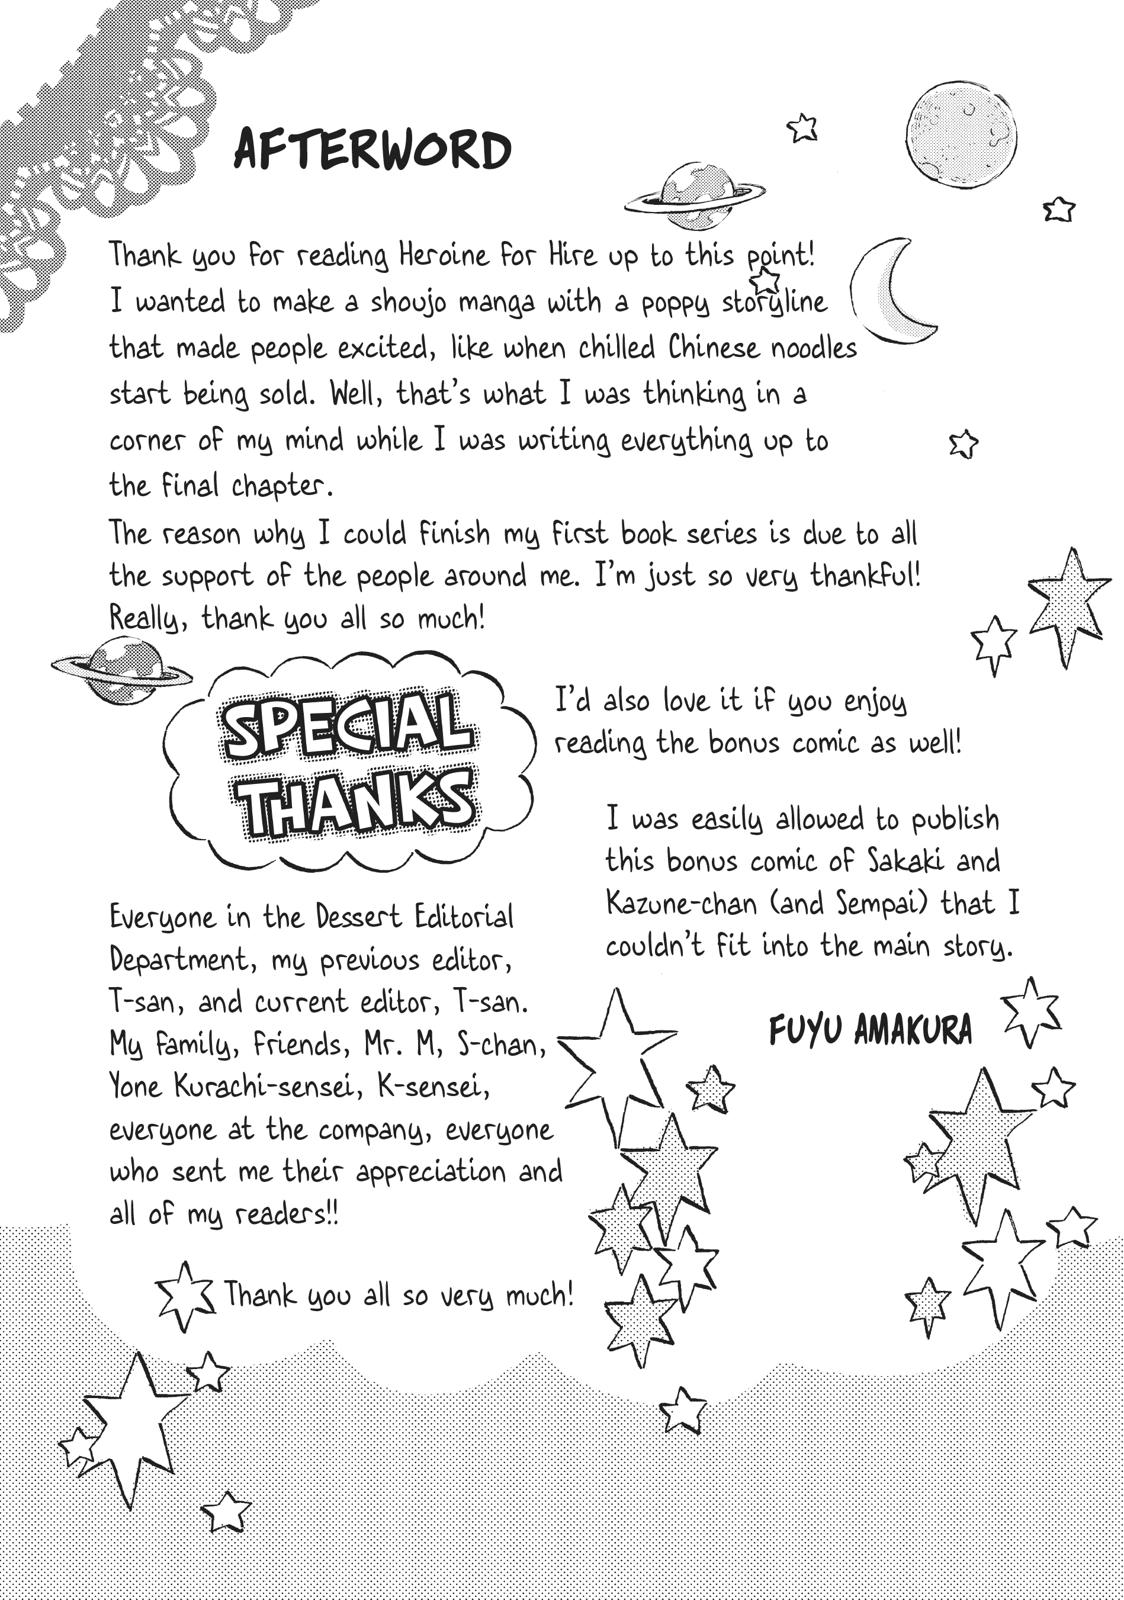 AFTERWORD
Thank you for reading Heroine for Hire up to this point!
I wanted to make a shoujo manga with a poppy storyline
that made people excited, like when chilled Chinese noodles
start being sold. Well, that's what I was thinking in a
corner of my mind while I was writing everything up to
the final chapter.
The reason why I could finish my first book series is due to all
the support of the people around me. I'm just so very thankful!
Really, thank you all so much!
SPECIAL
THANKS
Everyone in the Dessert Editorial
Department, my previous editor,
T-san, and current editor, T-san.
My family, friends, Mr. M, S-chan,
Yone Kurachi-sensei, K-sensei,
everyone at the company, everyone
who sent me their appreciation and
all of my readers!!
Thank you all so very much!
I'd also love it if you enjoy
reading the bonus comic as well!
I was easily allowed to publish
this bonus comic of Sakaki and
Kazune-chan (and Sempai) that I
couldn't fit into the main story.
FUYU AMAKURA